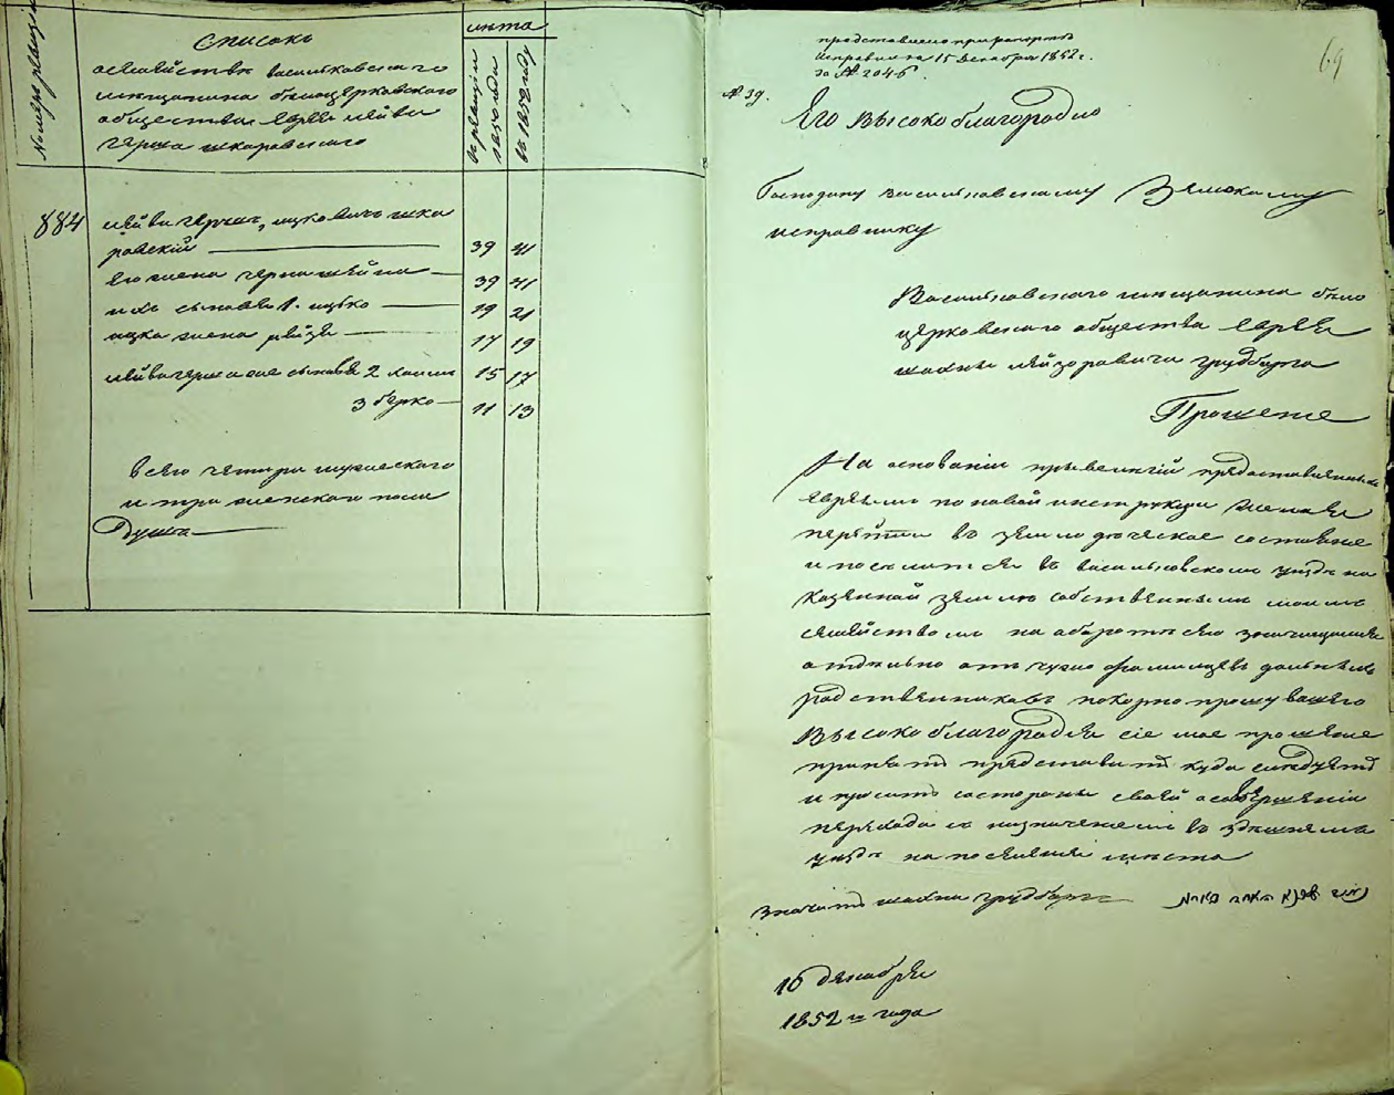 Номеръ ревизіи
Списокъ
лѣта
осемѣйствѣ васильковского
мещанина белоцерковского
общества еврея лейви
герша шкаровского
въ ревизіи 1850 года
въ 1852 году
884
лейви гершъ, ицковичъ шка
ровскій 39 41
его жена черна шейна 39 41
ихъ сыновья 1. ицько 19 21
ицка жена рейзя 17 19
лейви герша сыновья 2 хаим 15 17
3 берко 11 13
всего четыри мужеского
и три женского пола
Душъ
69
представлено при рапортѣ
исправника 15 Декабря 1852 г.
за № 2045
№ 39.
Его Высокоблагородию
Господину васильковскому Земскому
исправнику
Васильковского мещанина било
церковского общества еврея
шахны лейзоровича
Прошение
На основаніи привелигій предоставленныхъ
евреямъ по новой инструкции желая
перейти въ земледѣлческое состояние
и поселится въ васильковскомъ уездѣ на
казенной землю собственнымъ моимъ
семейством на оборотѣ сего значущимся
отдельно отъ чужо фамилцевъ дольнихъ
родственниковъ покорно прошу вашего
Высокоблагородия сіе мое прошение
принять представить куда следуетъ
и просить состороны своей осовершеніи
перехода и назначении въ здешнемъ
уездѣ на поселения места
значитъ шахна
16 декабря
1852 го года